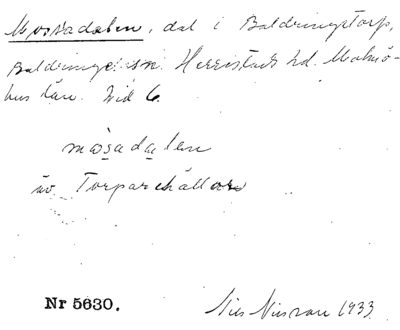 Mossadalen, dal i Baldringetorp,
Baldringe sn. Herrestads hd. Malmö-
hus län. Vid 6.
måsadalen
äv. Torparekällan
Nr 5630.
Nils Nilsson 1933.